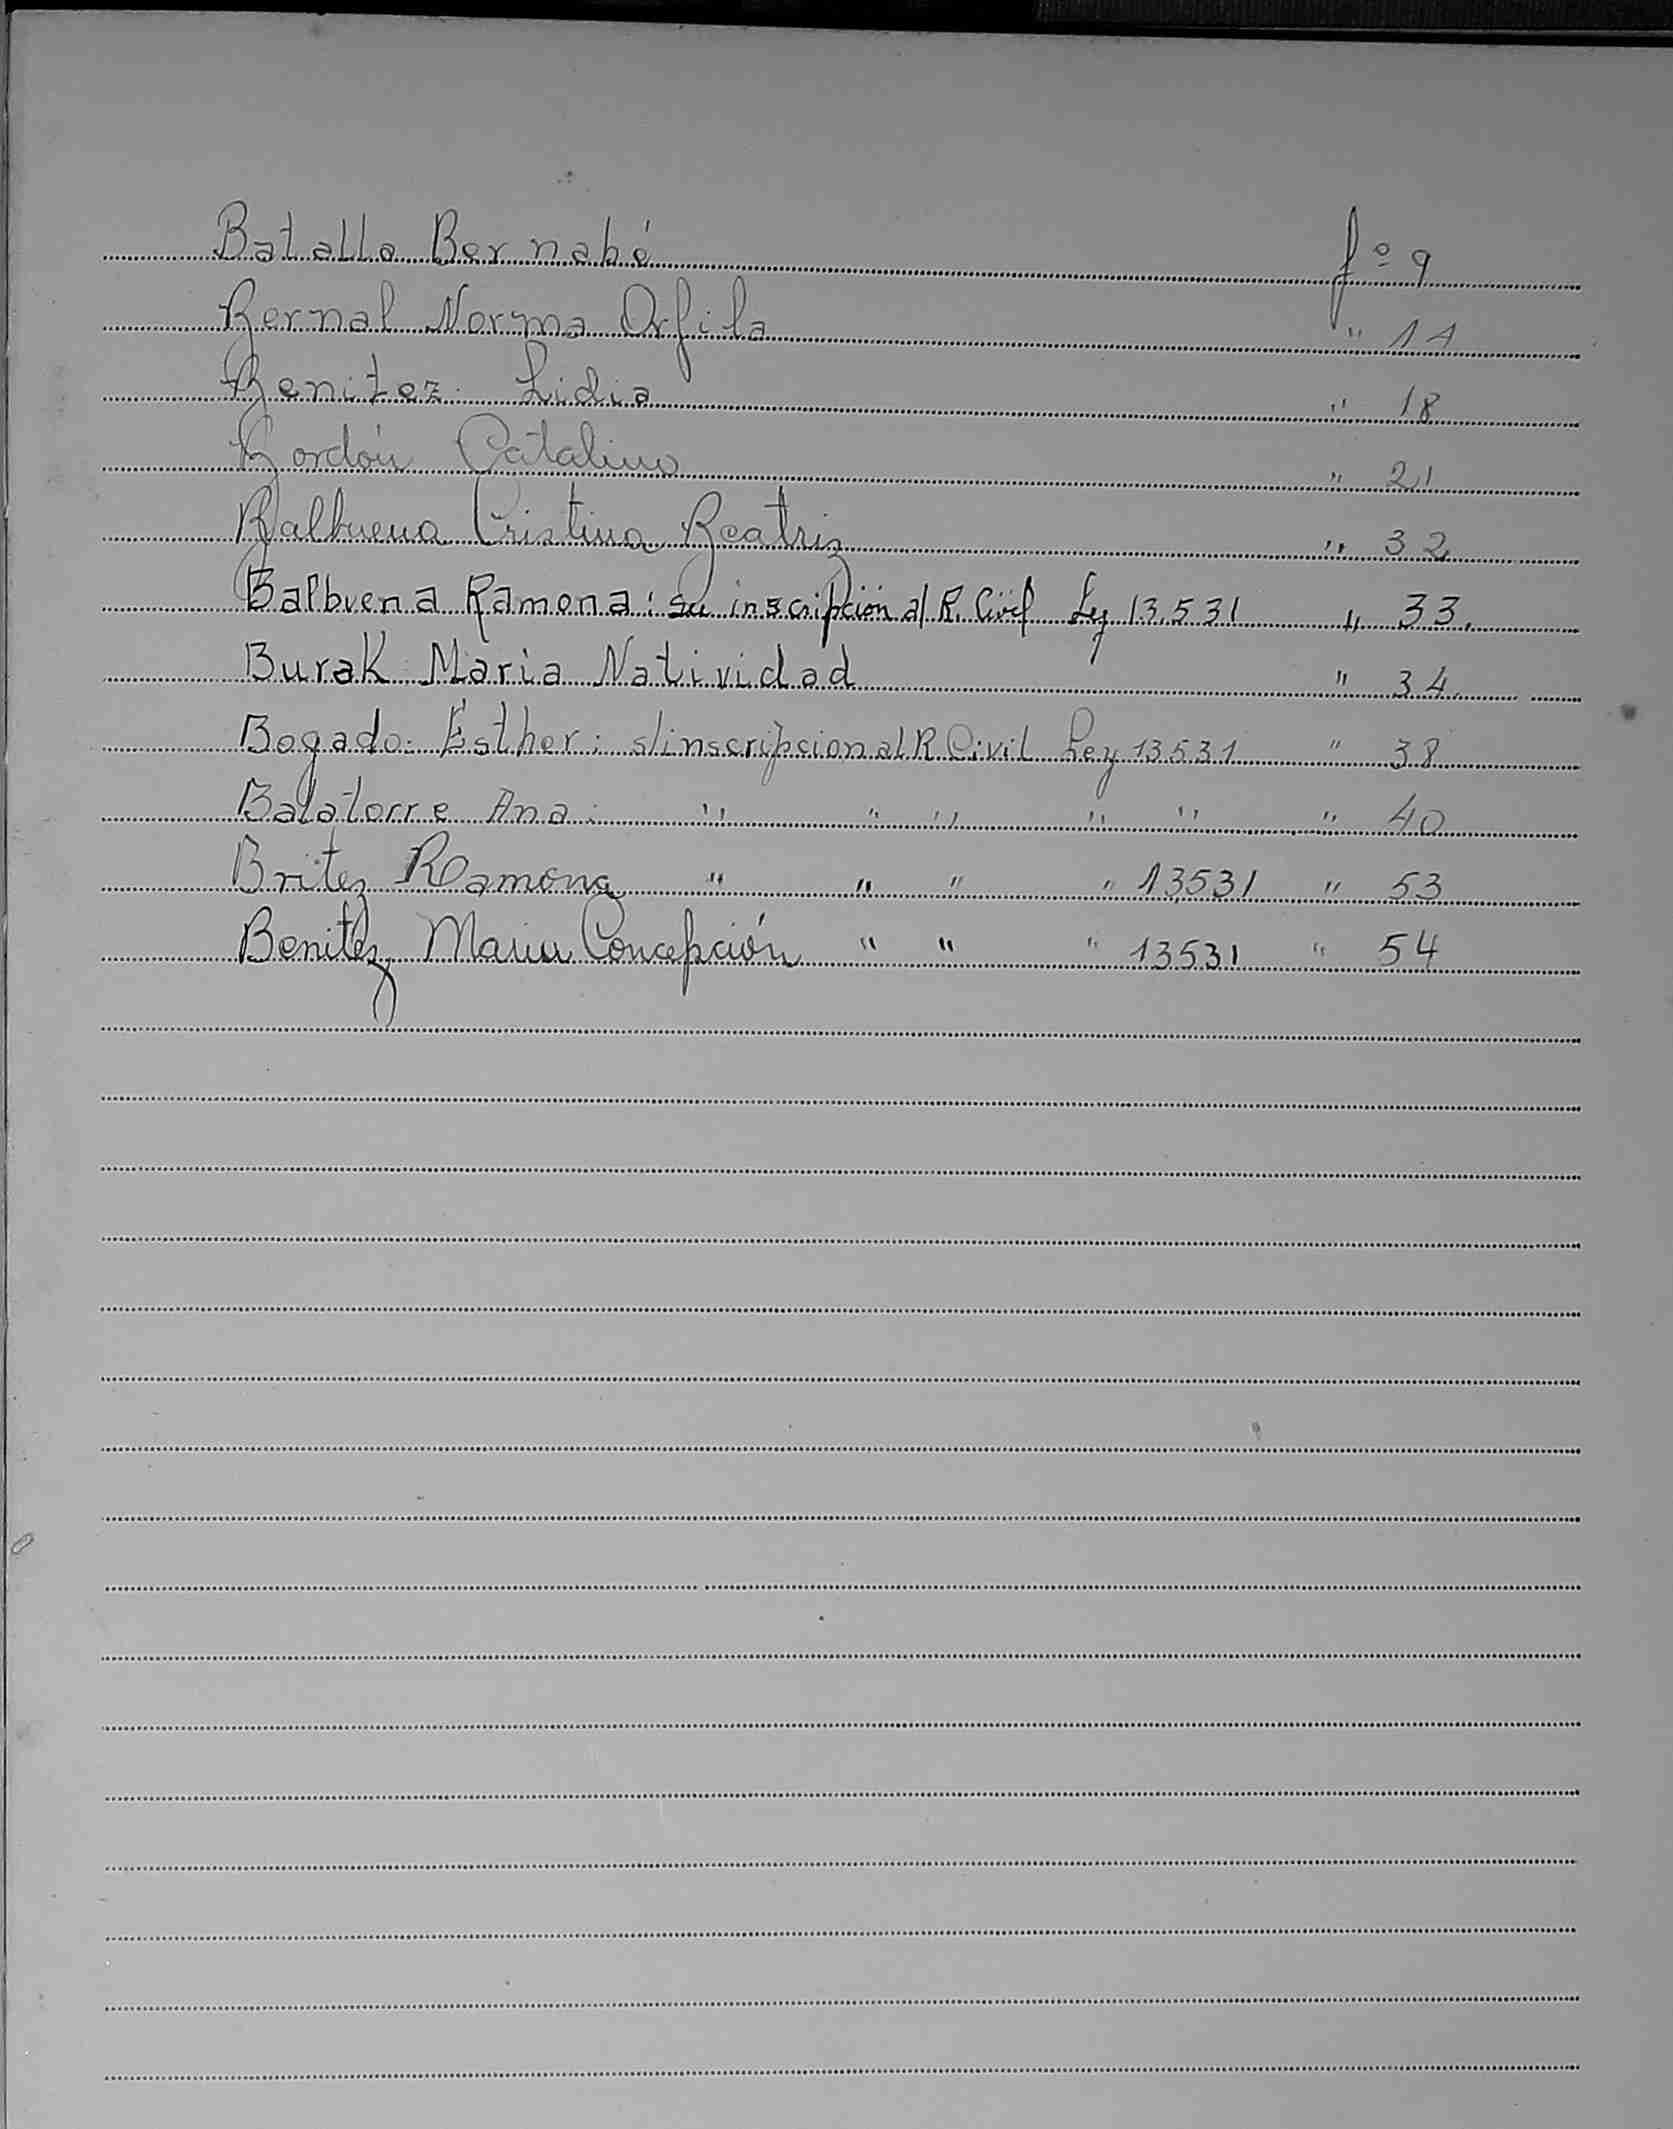 Batalla Bernabé fº 9
Bernal Norma Orfila " 11
Benitez Lidia " 18
Bordón Catalino " 21
Balbuena Cristina Beatriz " 32
Balbuena Ramona: su inscripción al R. Civil Ley 13.531 " 33.
Burak Maria Natividad " 34
Bogado Esther: s/inscripcion al R. Civil Ley 13531 " 38
Balatorre Ana: " " " " " " 40
Britez Ramona " " " " 13531 " 53
Benitez Maria Concepción " " " 13531 " 54